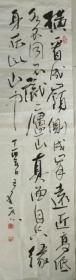 横看成嶺側成峯遠近高低
各不同不識廬山真面目只緣
身在此山中